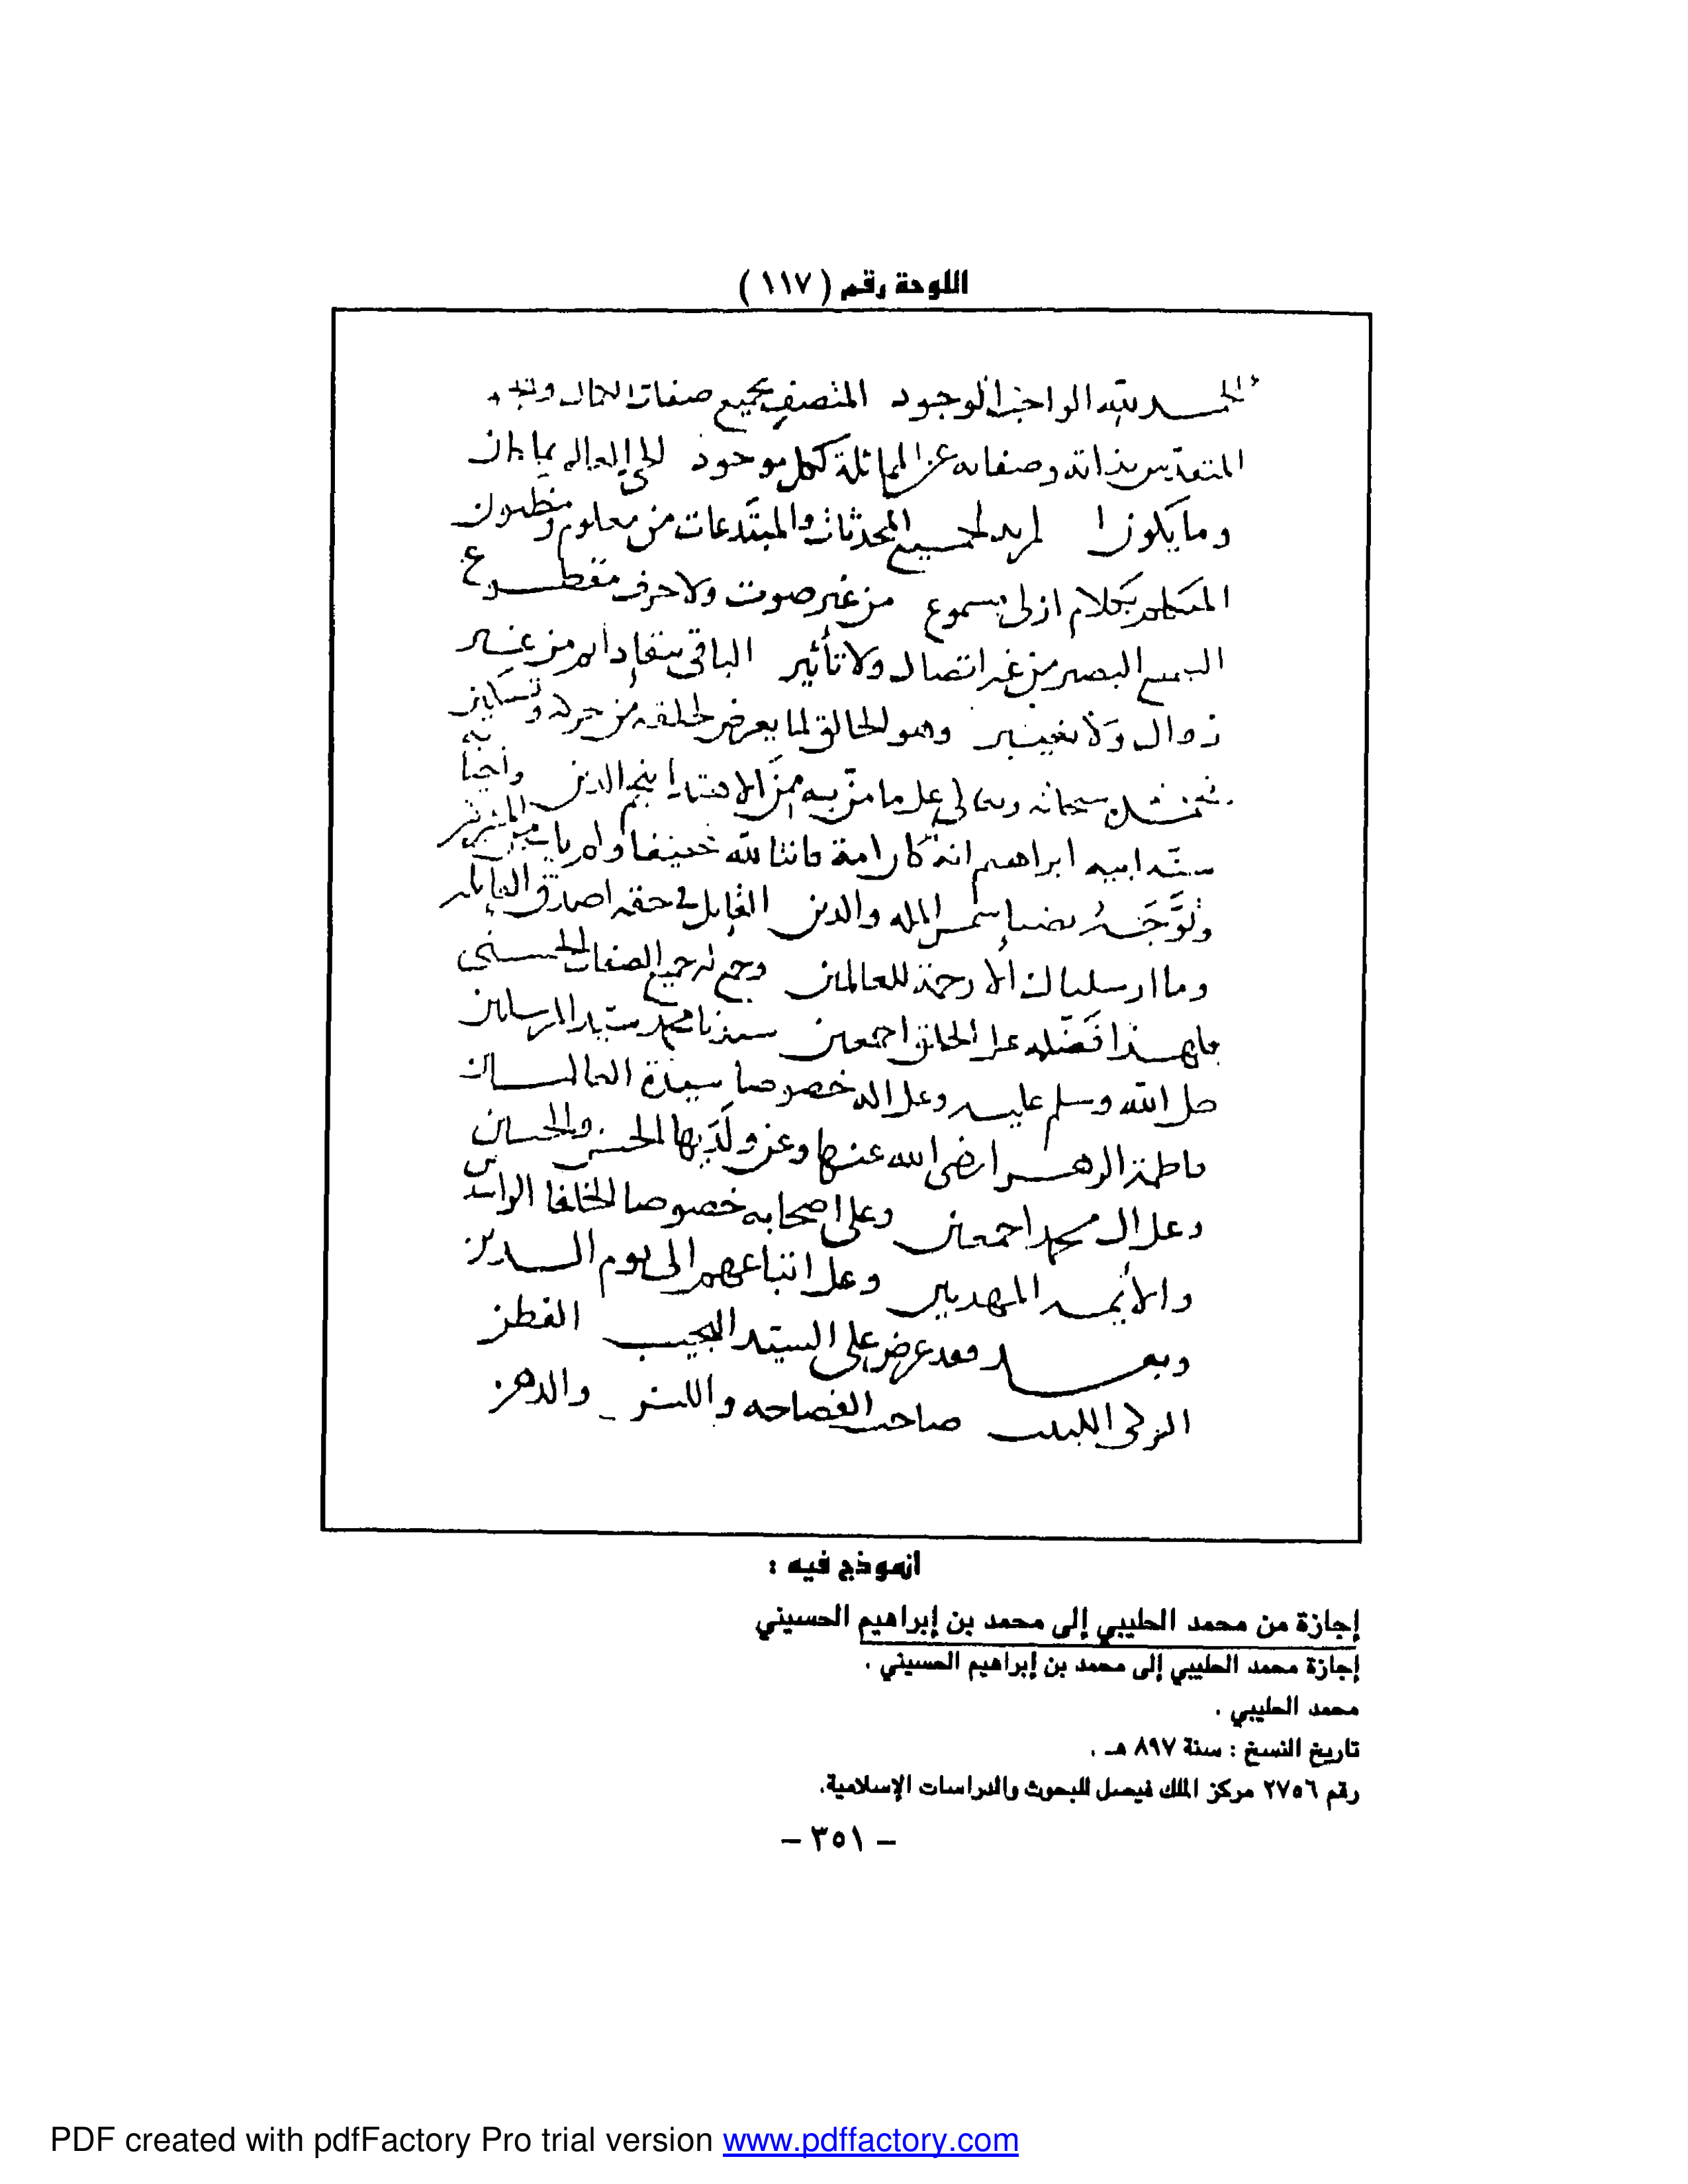 اللوحة رقم ( ١١٧ )
الحمد لله الواجب الوجود المتصف بجميع صفات الكمال
المتقدس بذاته وصفاته عن المماثلة كل موجود الحي العالم بما كان
وما يكون المريد لجميع المحدثات والمبتدعات من معلوم ومظنون
المتكلم بكلام ازلي مسموع من غير صوت ولا حرف مقطوع
السميع البصير من غير اتصال ولا تأثير الباقي دايم من غير
زوال ولا تغيير وهو الخالق لما يعرض لخلقه من حركة وتسكين
سبحانه وتعالى على ما من به من الاهتداء الدين
ابيه ابراهيم انه كان امة قانتا لله حنيفا ولم يك من المشركين
شمس المله والدين القايل في حقه اصدق القايلين
وما ارسلناك الا رحمة للعالمين وجمع له جميع الصفات الحسنى
فضله على الخلق اجمعين سيدنا محمد سيد المرسلين
صلى الله وسلم عليه وعلى اله خصوصا سيدة
فاطمة الزهرا رضي الله عنها وعن ولديها الحسن والحسين
وعلى ال محمد اجمعين وعلى اصحابه خصوصا الخلفا الراشدين
والأئمه المهديين وعلى اتباعهم الى يوم الدين
وبعد فقد عرض علي السيد النجيب الفطن
الزكي اللبيب صاحب الفصاحه واللسن والذهن
انموذج فيه :
إجازة من محمد الطيبي إلى محمد بن إبراهيم الحسيني
إجازة محمد الطيبي إلى محمد بن إبراهيم الحسيني .
محمد الطيبي .
تاريخ النسخ : سنة ٨٩٧ هـ .
رقم ٢٧٥٦ مركز الملك فيصل للبحوث والدراسات الإسلامية.
– ٣٥١ –
PDF created with pdfFactory Pro trial version www.pdffactory.com